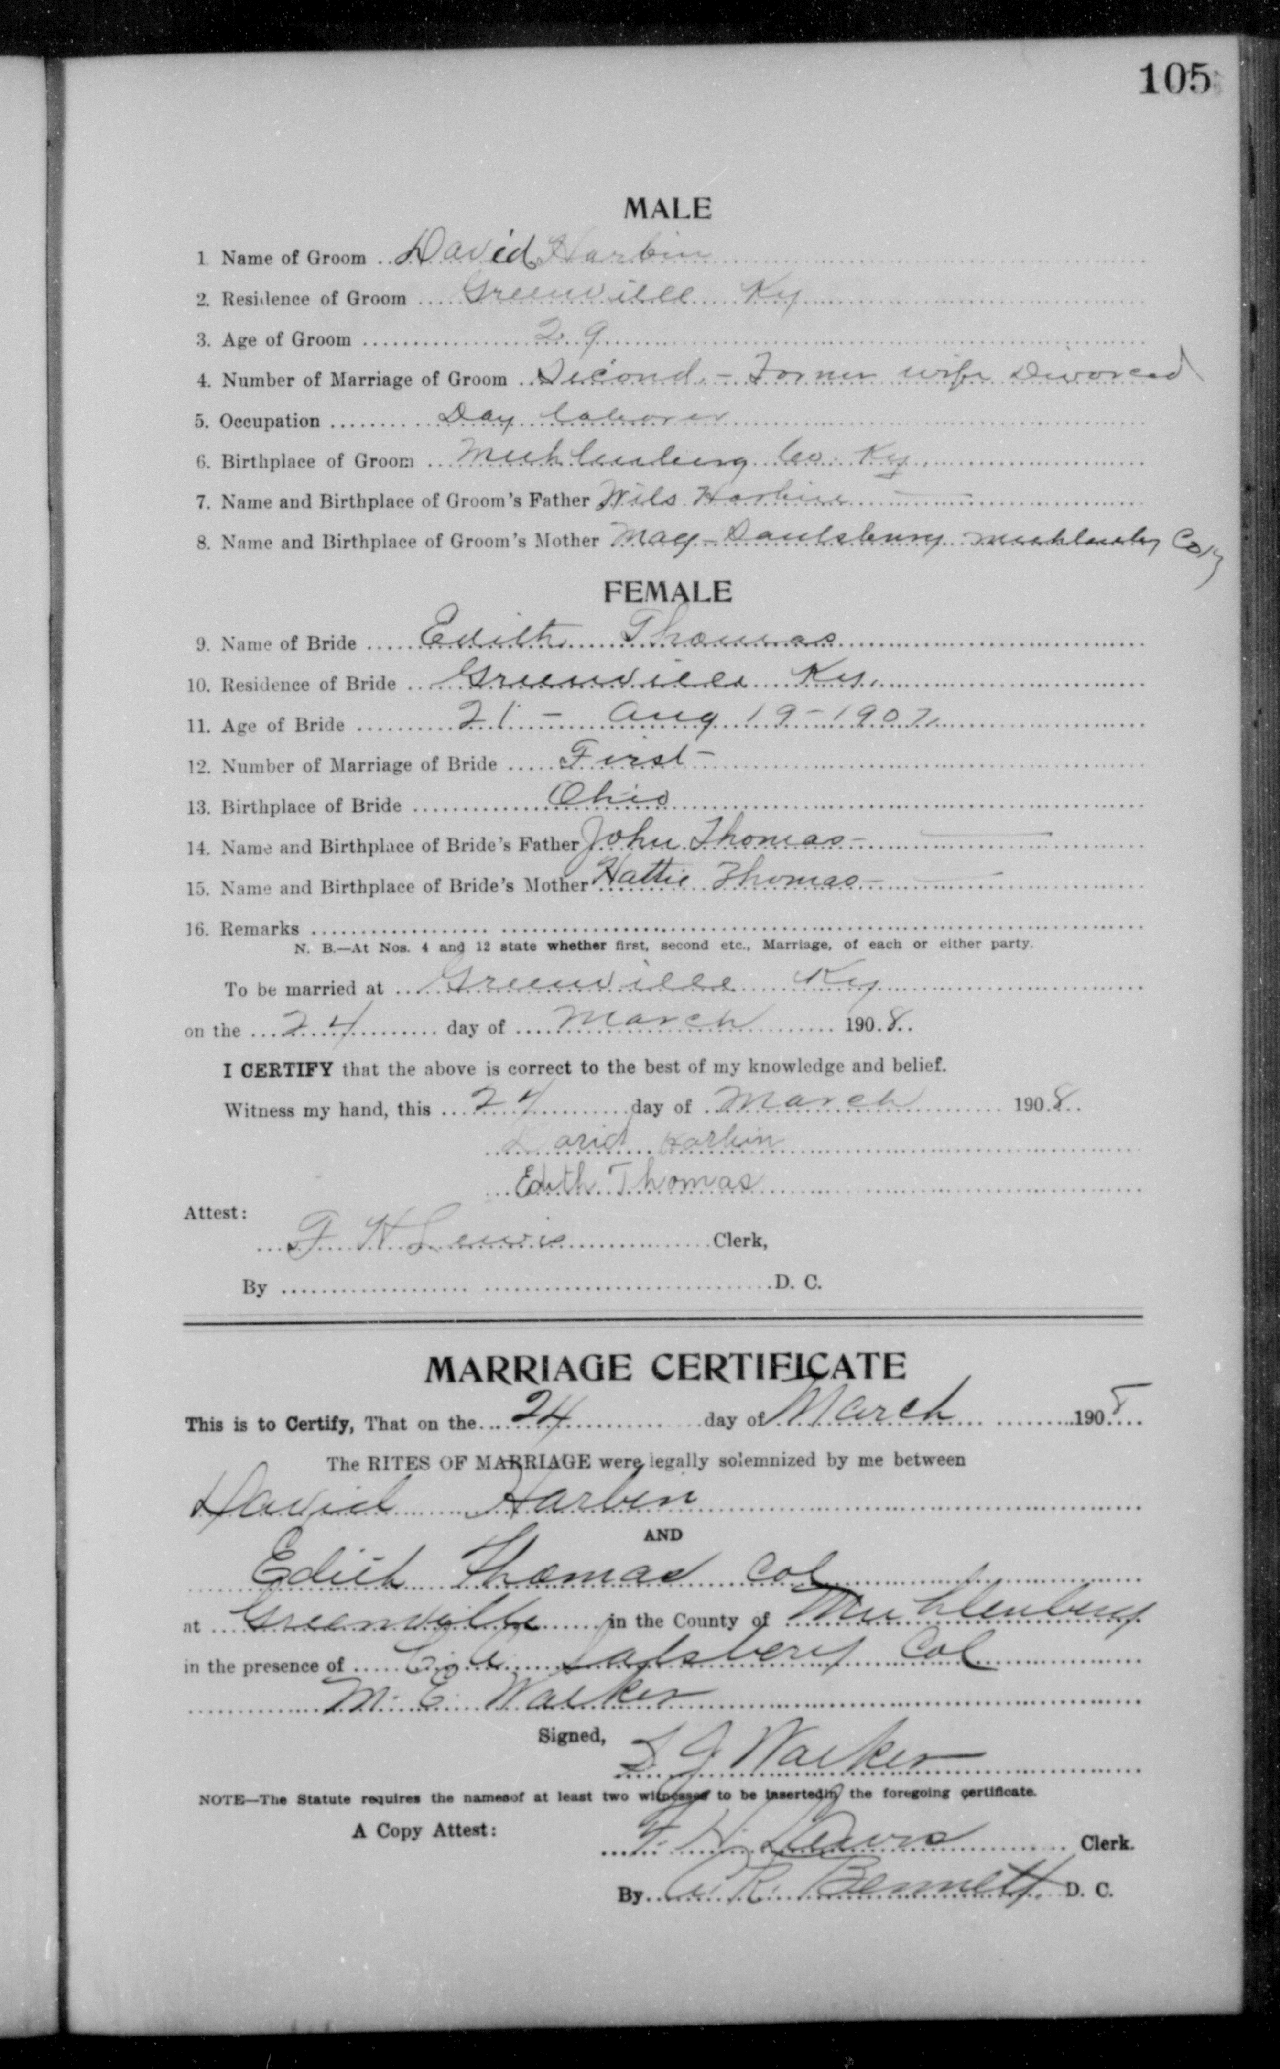 105
MALE
1 Name of Groom David Harbin
2. Residence of Groom Greenville Ky
3. Age of Groom 29
4. Number of Marriage of Groom Second - Former wife Divorced
5. Occupation Day laborer
6. Birthplace of Groom Muhlenberg Co. Ky
7. Name and Birthplace of Groom's Father Wils Harbin
8. Name and Birthplace of Groom's Mother May Saulsbury Muhlenberg Co Ky
FEMALE
9. Name of Bride Edith Thomas
10. Residence of Bride Greenville Ky.
11. Age of Bride 21 - Aug 19 - 1907
12. Number of Marriage of Bride First
13. Birthplace of Bride Ohio
14. Name and Birthplace of Bride's Father John Thomas
15. Name and Birthplace of Bride's Mother Hattie Thomas
16. Remarks
N. B.—At Nos. 4 and 12 state whether first, second etc., Marriage, of each or either party.
To be married at Greenville Ky
on the 24 day of March 1908.
I CERTIFY that the above is correct to the best of my knowledge and belief.
Witness my hand, this 24 day of March 1908.
David Harbin
Edith Thomas
Attest:
F. H Lewis Clerk,
By D. C.
MARRIAGE CERTIFICATE
This is to Certify, That on the 24 day of March 1908
The RITES OF MARRIAGE were legally solemnized by me between
David Harbin
AND
Edith Thomas Col
at Greenville in the County of Muhlenberg
in the presence of Salsbery Col
M. E. Walker
Signed,
S J Walker
NOTE—The Statute requires the namesof at least two witnesses to be insertedin the foregoing certificate.
A Copy Attest:
F. H. Lewis Clerk.
By R. Bennett D. C.